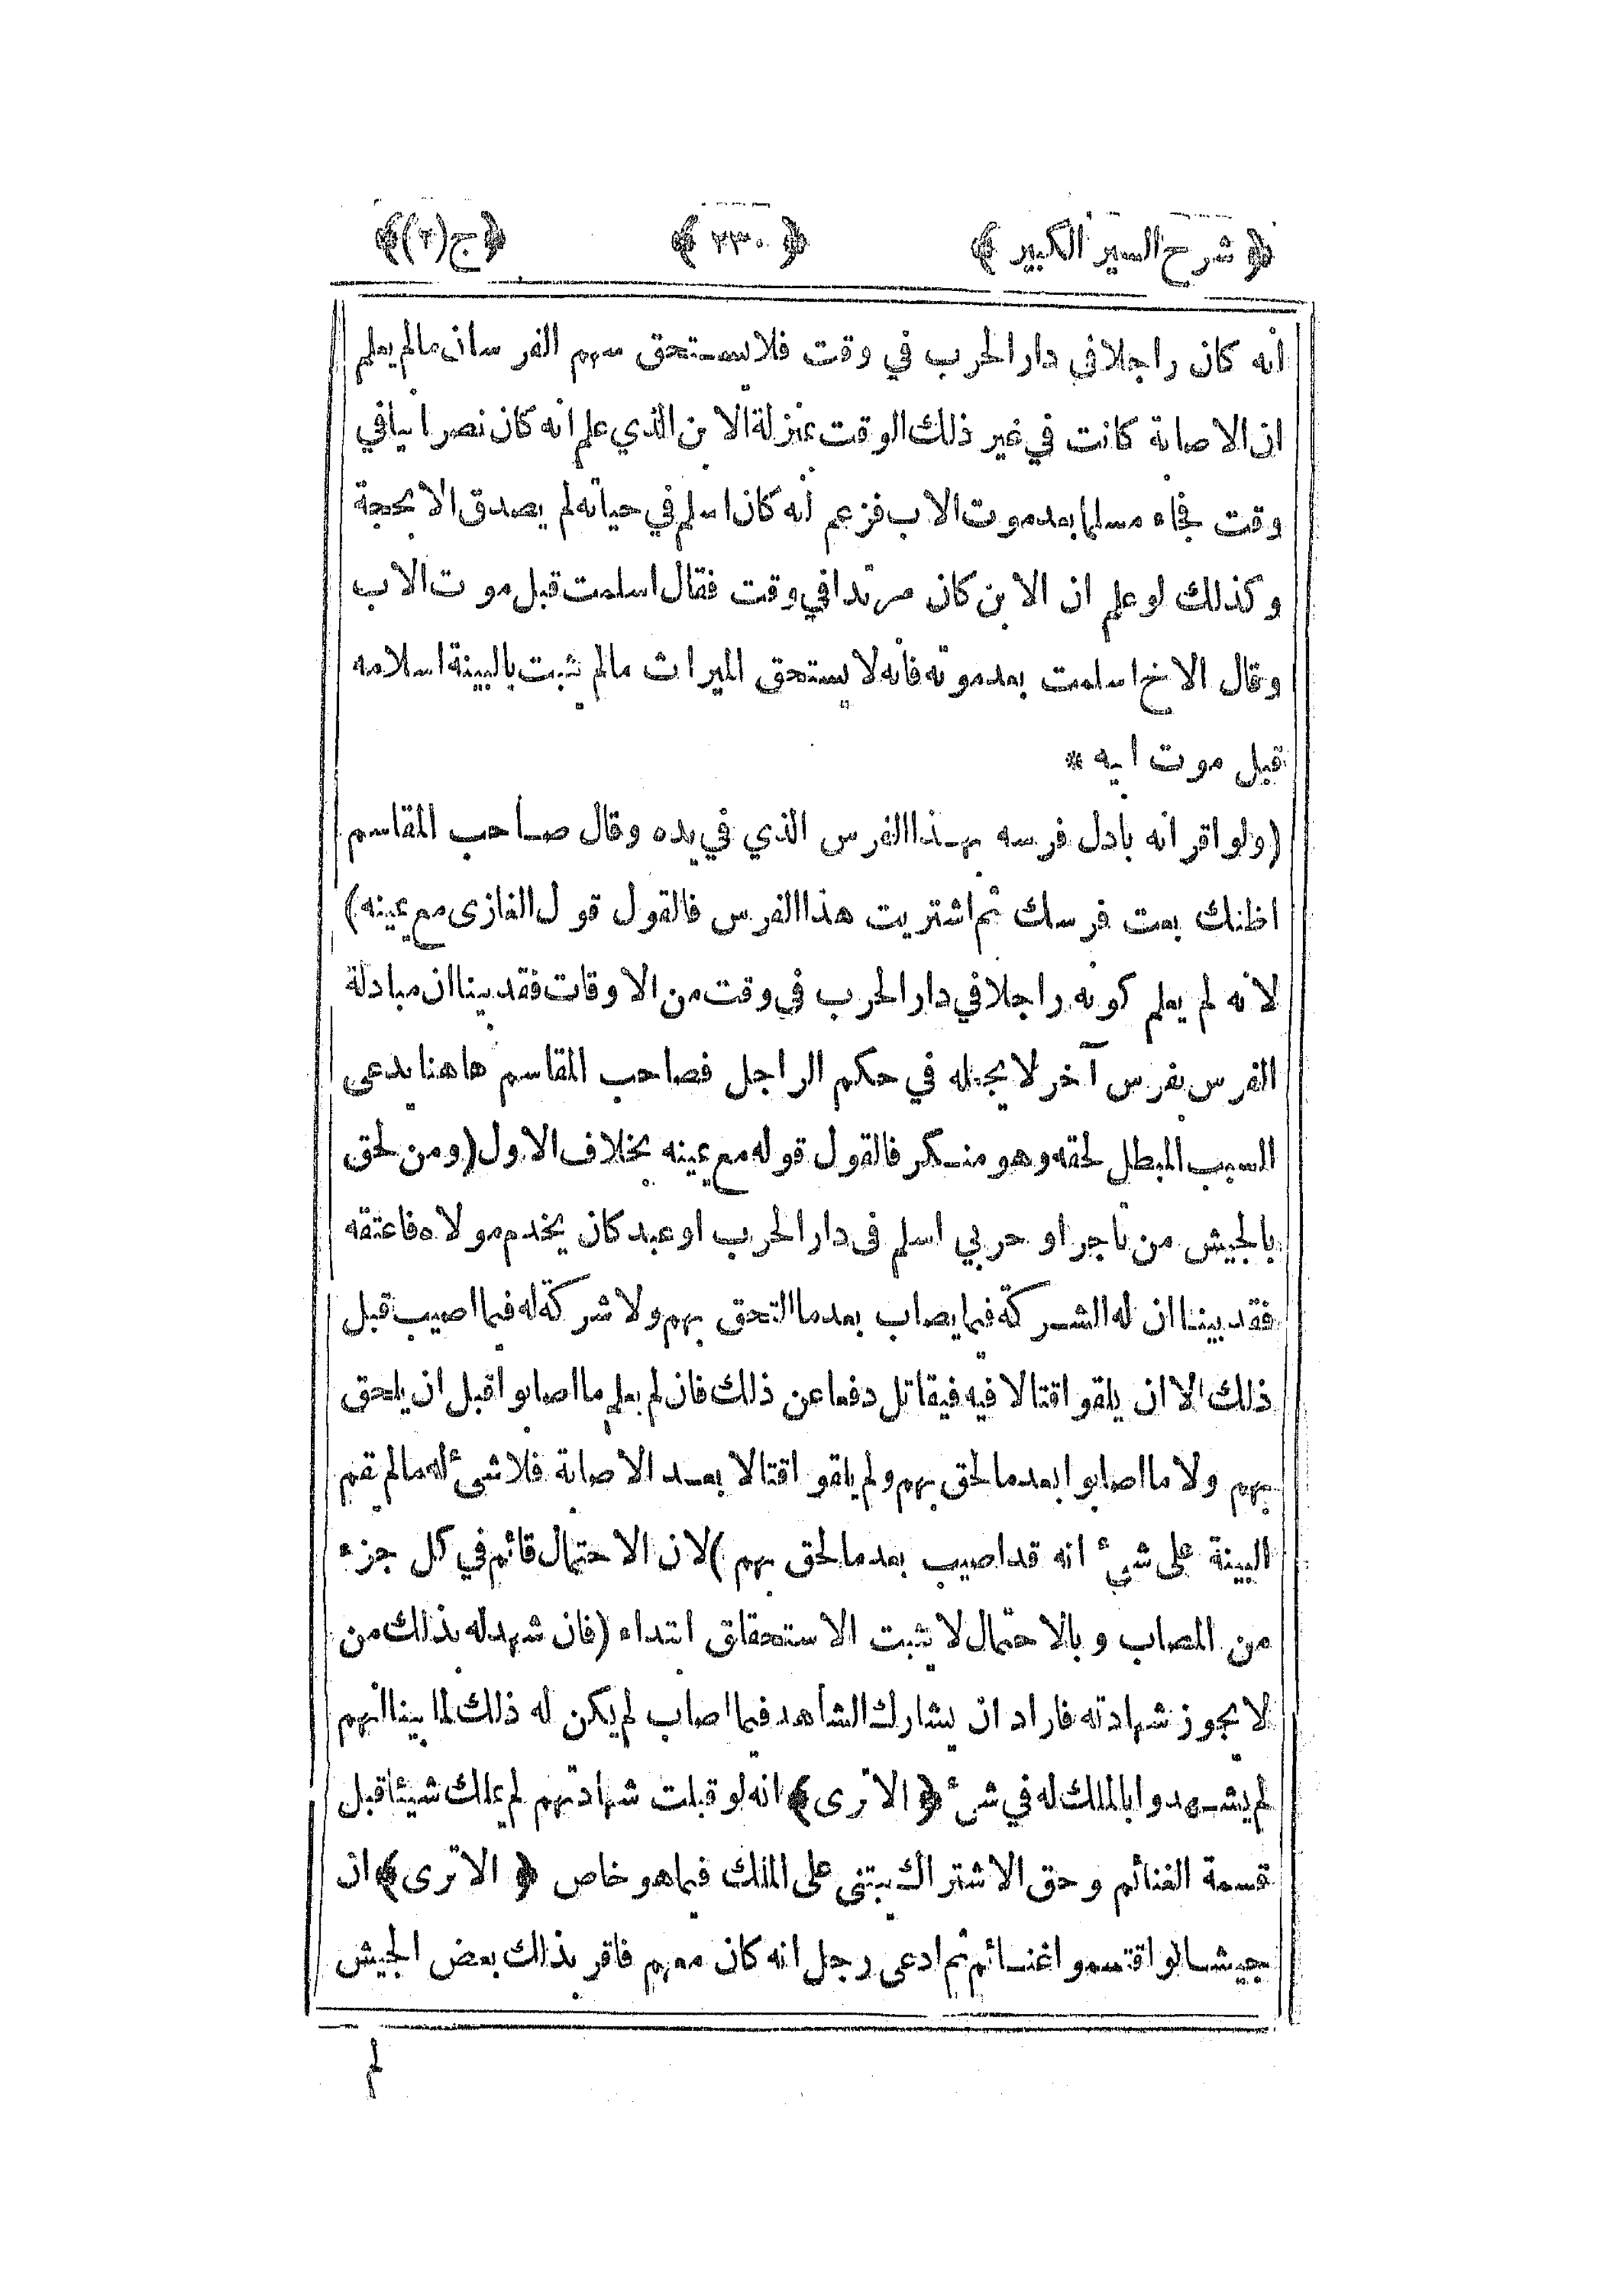 ﴿ شرح السير الكبير ﴾ ﴿ ٢٣٠ ﴾ ﴿ ج (٢) ﴾
انه كان راجلا في دار الحرب في وقت فلا يستحق سهم الفرسان مالم يعلم
ان الاصابة كانت في غير ذلك الوقت بمنزلة الابن الذي علم انه كان نصرانيا في
وقت فجاء مسلما بعد موت الاب فزعم انه كان اسلم في حياته لم يصدق الا بحجة
وكذلك لو علم ان الابن كان مرتدا في وقت فقال اسلمت قبل موت الاب
وقال الاخ اسلمت بعد موته فانه لا يستحق الميراث مالم يثبت بالبينة اسلامه
قبل موت ابيه *
(ولو اقر انه بادل فرسه بهذا الفرس الذي في يده وقال صاحب المقاسم
اظنك بعت فرسك ثم اشتريت هذا الفرس فالقول قول الغازى مع يمينه)
لانه لم يعلم كونه راجلا في دار الحرب في وقت من الاوقات فقد بينا ان مبادلة
الفرس بفرس آخر لا يجعله في حكم الراجل فصاحب المقاسم هاهنا يدعى
السبب المبطل لحقه وهو منكر فالقول قوله مع يمينه بخلاف الاول (ومن لحق
بالجيش من تاجر او حربي اسلم فى دار الحرب او عبد كان يخدم مولاه فاعتقه
فقد بينا ان له الشركة فيما يصاب بعد ما التحق بهم ولا شركة له فيما اصيب قبل
ذلك الا ان يلقوا قتالا فيه فيقاتل دفعا عن ذلك فان لم يعلم ما اصابوا قبل ان يلحق
بهم ولا ما اصابوا بعد ما لحق بهم ولم يلقوا قتالا بعد الاصابة فلا شئ له مالم تقم
البينة على شئ انه قد اصيب بعد ما لحق بهم) لان الاحتمال قائم في كل جزء
من المصاب وبالاحتمال لا يثبت الاستحقاق ابتداء (فان شهد له بذلك من
لا يجوز شهادته فاراد ان يشارك الشاهد فيما اصاب لم يكن له ذلك لما بينا انهم
لم يشهدوا بالملك له في شئ ﴿ الا ترى ﴾ انه لو قبلت شهادتهم لم يملك شيئا قبل
قسمة الغنائم وحق الاشتراك يبتنى على الملك فيما هو خاص ﴿ الا ترى ﴾ ان
جيشا لو اقتسموا غنائم ثم ادعى رجل انه كان معهم فاقر بذلك بعض الجيش
لم